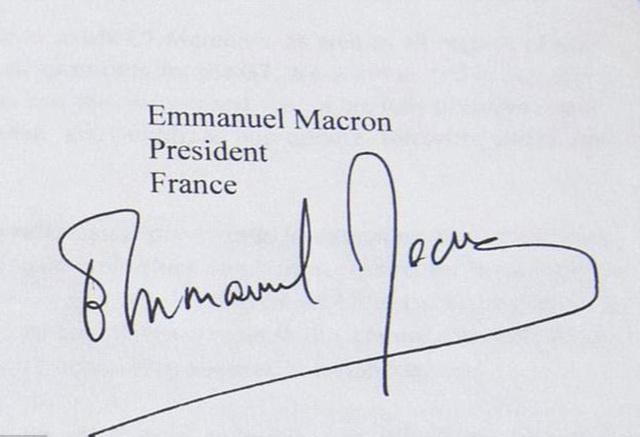 Emmanuel Macron
President
France
Emmanuel Macron